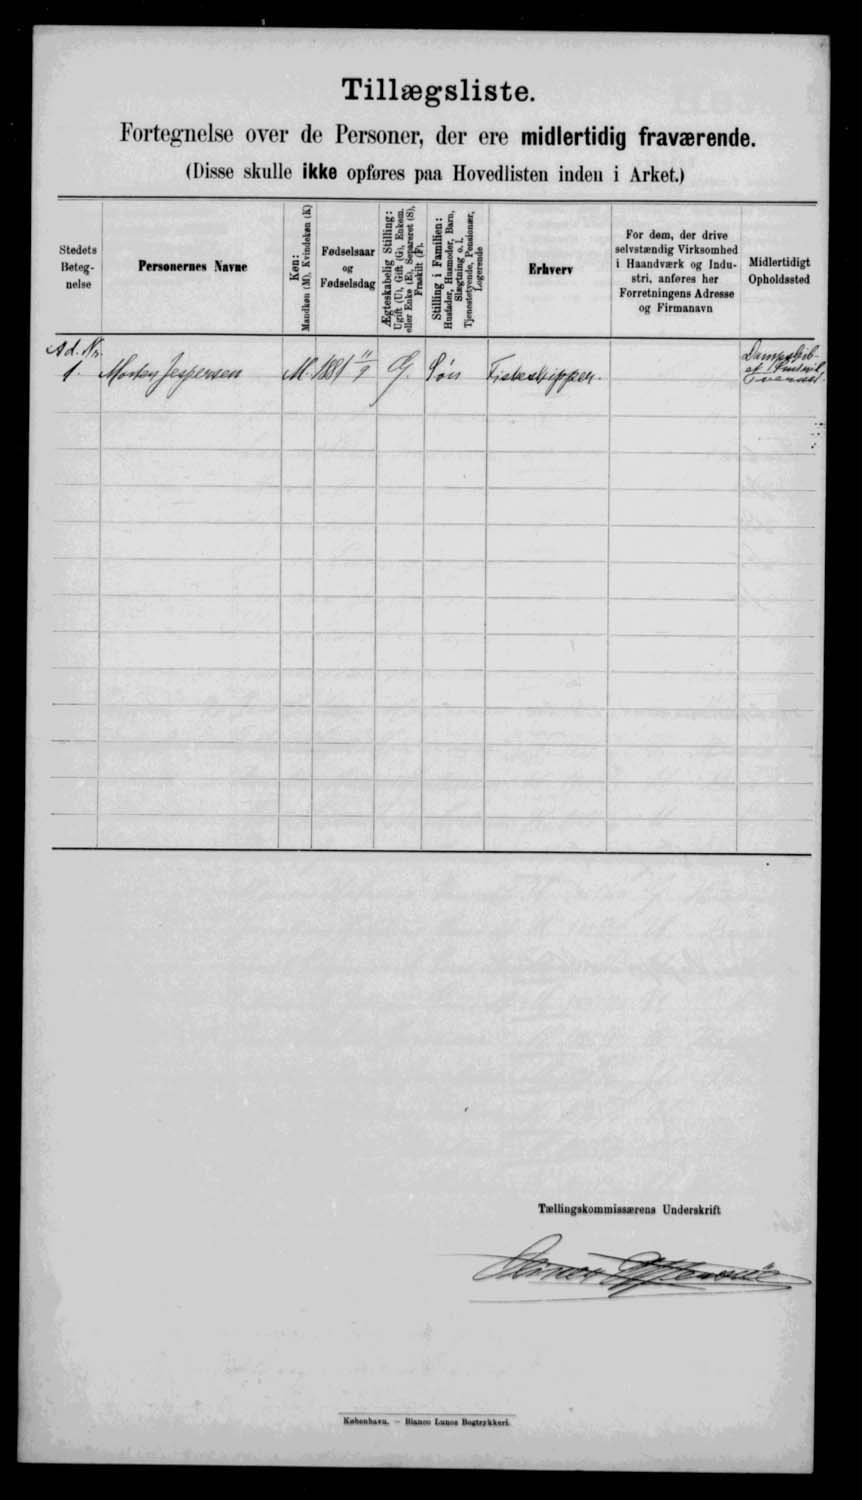 Tillægsliste.
Fortegnelse over de Personer, der ere midlertidig fraværende.
(Disse skulle ikke opføres paa Hovedlisten inden i Arket.)
Stedets
Beteg-
nelse
Personernes Navne
Køn:
Mandkøn (M), Kvindekøn (K)
Fødselsaar
og
Fødselsdag
Ægteskabelig Stilling:
Ugift (U), Gift (G), Enkem.
eller Enke (E), Separeret (S),
Fraskilt (F).
Stilling i Familien:
Husfader, Husmoder, Barn,
Slægtning o. l.
Tjenestetyende, Pensionær,
Logerende
Erhverv
For dem, der drive
selvstændig Virksomhed
i Haandværk og Indu-
stri, anføres her
Forretningens Adresse
og Firmanavn
Midlertidigt
Opholdssted
Ad. Nr.
1. Morten Jespersen M. 1881 11/9 G. Søn Fiskeskipper.
Tællingskommissærens Underskrift
København. — Bianco Lunos Bogtrykkeri.